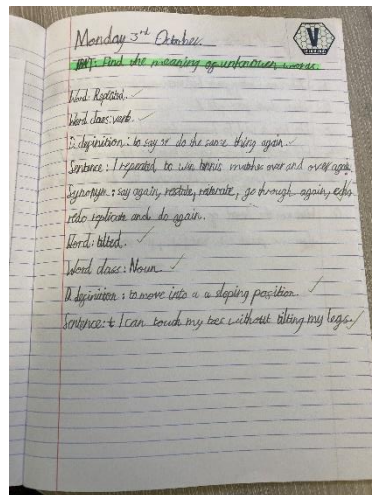 Monday 3rd October.
V
Find the meaning of unknown words.
Word: Repeated.
Word class: verb.
Definition: to say or do the same thing again.
Sentence: I repeated to win tennis matches over and over again.
Synonym: say again, restate, reiterate, go through again, echo
redo replicate and do again.
Word: tilted.
Word class: Noun.
Definition: to move into a a sloping position.
Sentence: I can touch my toes without tilting my legs.